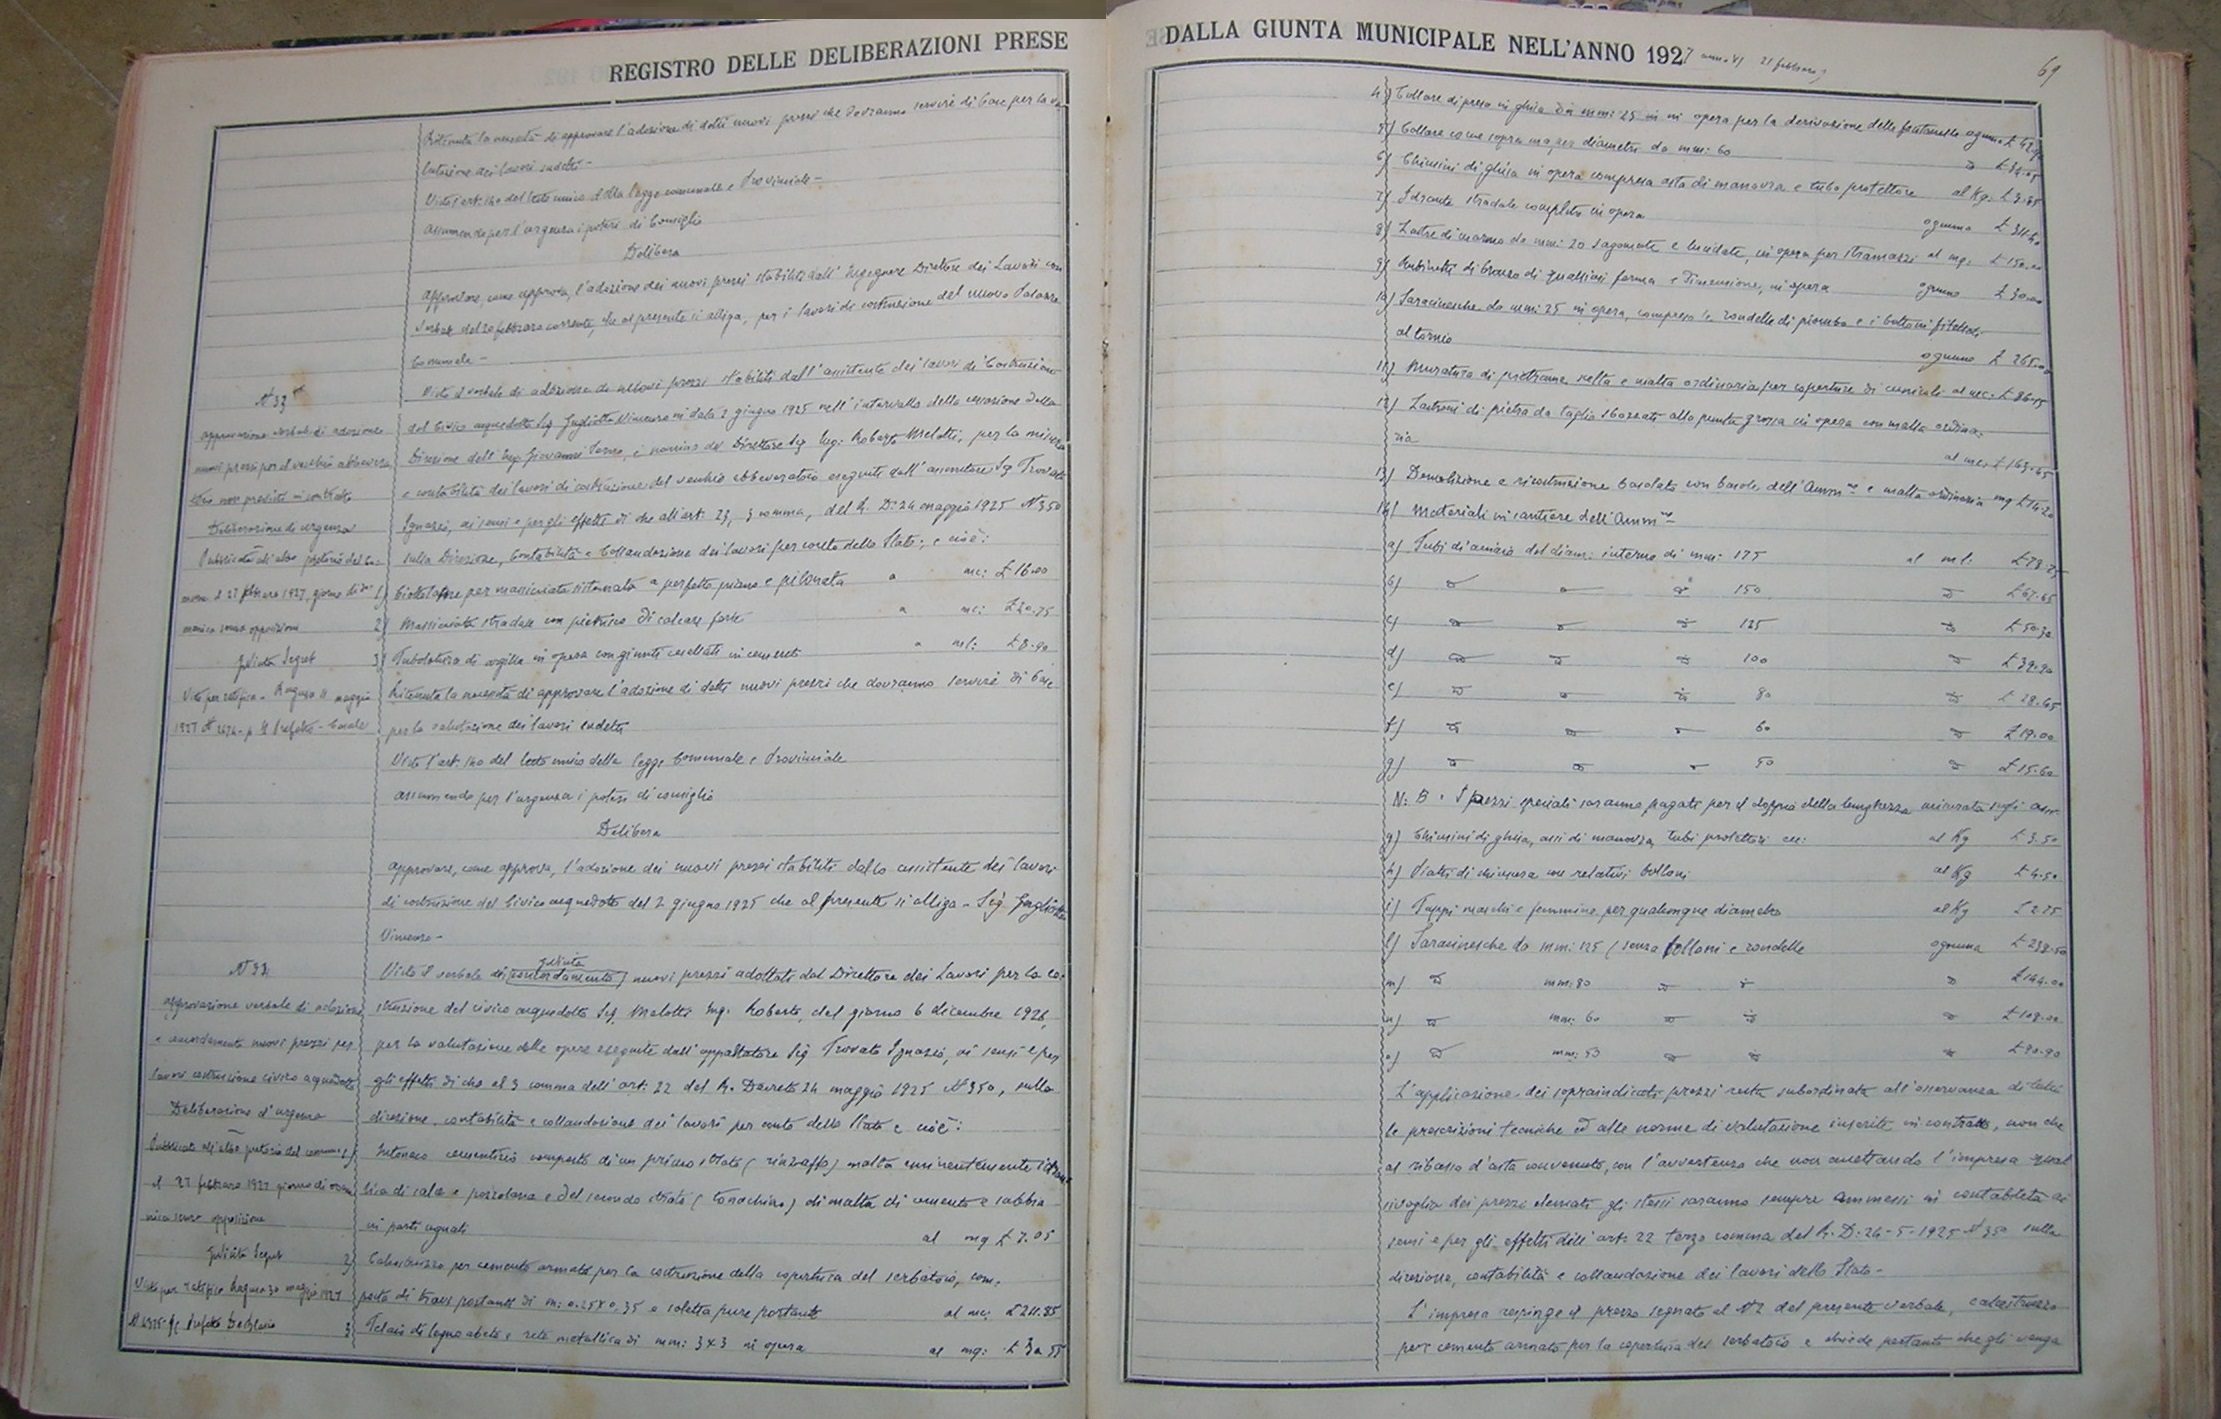 REGISTRO DELLE DELIBERAZIONI PRESE
Ritenuta la necessità di approvare l'adozione di detti nuovi prezzi che dovranno servire di base per la va-
lutazione dei lavori sudetti -
Visto l'art. 140 del testo unico della legge comunale e Provinciale -
assumendo per l'urgenza i poteri di Consiglio
Delibera
approvare, come approva, l'adozione dei nuovi prezzi stabiliti dall'Ingegnere Direttore dei Lavori con
verbale del 20 febbraro corrente, che al presente si alliga, per i lavori di costruzione del nuovo Palazzo
Comunale -
N 32
approvazione verbale di adozione
nuovi prezzi per il vecchio abbevera
toio non previsti in contratto
Deliberazione di urgenza
Pubblicata all'albo pretorio del Co-
mune il 27 febbraro 1927, giorno di do
menica senza opposizioni
Visto per ratifica - Ragusa 11 maggio
1927 N 2674 - p. Il Prefetto - Casale
Visto il verbale di adozione di nuovi prezzi stabiliti dall'assistente dei lavori di Costruzione
del Civico acquedotto Sig. Gugliotta Vincenzo in data 2 giugno 1925 nell'intervallo della cessazione della
Direzione dell'Ing. Giovanni, e nomina del Direttore Sig. Ing: Roberto Melotti, per la misura
e contabilità dei lavori di costruzione del vecchio abbeveratoio eseguiti dall'assuntore Sig Trovato
Ignazio, ai sensi e per gli effetti di che all'art. 23, 3 comma, del R. D: 24 maggio 1925 N 350
sulla Direzione, Contabilità e Collaudazione dei lavori per conto dello Stato; e cioè:
1) Ciottolame per massicciata sistemata a perfetto piano e pilonata a mc: £ 16.00
2) Massicciata stradale con pietrisco di calcare forte a mc: £ 20.75
3) Tubolatura di argilla in opera con giunti suellati in cemento a ml: £ 8.90
Ritenuta la necessità di approvare l'adozione di detti nuovi prezzi che dovranno servire di base
per la valutazione dei lavori sudetti
Visto l'art. 140 del testo unico della legge Comunale e Provinciale
assumendo per l'urgenza i poteri di consiglio
Delibera
approvare, come approva, l'adozione dei nuovi prezzi stabiliti dallo assistente dei lavori
di costruzione del Civico acquedotto del 2 giugno 1925 che al presente si alliga - Sig. Gugliotta
Vincenzo -
N 33
approvazione verbale di adozione
e concordamento nuovi prezzi per
lavori costruzione civico acquedotto
Deliberazione d'urgenza
Pubblicata all'albo pretorio del comune
il 27 febbraro 1927 giorno di dome
nica senza opposizione
Visto per ratifica Ragusa 30 maggio 1927
Visto il verbale di (concordamento) nuovi prezzi adottati dal Direttore dei Lavori per la co-
struzione del civico acquedotto Sig. Melotti Ing. Roberto, del giorno 6 dicembre 1926,
per la valutazione delle opere eseguite dall'appaltatore Sig. Trovato Ignazio, ai sensi e per
gli effetti di che al 3 comma dell'art. 22 del R. Decreto 24 maggio 1925 N 350, sulla
direzione, contabilità e collaudazione dei lavori per conto dello Stato e cioè:
1) Intonaco cementizio composto di un primo strato (rinzaffo) malta eminentemente idrau
lica di calce e pozzolana e del secondo strato (tonachino) di malta di cemento e sabbia
in parti eguali al mq £ 7.05
2) Calcestruzzo per cemento armato per la costruzione della copertura del serbatoio, com-
posto di travi portanti di m: 0.25 x 0,35 e soletta pure portante al mc: £ 211.85
3 Telaio di legno abete e rete metallica di mm: 3x3 in opera al mq: £ 30 55
DALLA GIUNTA MUNICIPALE NELL'ANNO 1927 anno V 21 febbraro
69
4) Collare di presa in ghisa da mm: 25 in opera per la derivazione delle fontanelle ognuno £ 42.90
5) Collare come sopra ma per diametri da mm: 60 £ 34.65
6) Chiusini di ghisa in opera compresa asta di manovra e tubo protettore al Kg: £ 3.85
7) Idrante stradale completo in opera ognuno
8) Lastre di marmo da mm: 20 sagomate e lucidate, in opera per stramazzi al mq: £ 150.00
9) Rubinetti di bronzo di qualsiasi forma e Dimensione, in opera ognuno £ 30.00
10) Saracinesche da mm: 25 in opera, compreso le rondelle di piombo e i bolloni filettati
al tornio ognuno £ 265.00
11) Muratura di pietrame scelta e malta ordinaria per coperture di cunicoli al mc: £ 86.15
12) Lastroni di pietra da taglio sbozzati alla punta grossa in opera con malta ordina-
ria al mc. £ 163.65
13) Demolizione e ricostruzione basolato con basole dell'Amm.ne e malta ordinaria mq £ 14.20
14) Materiali in cantiere dell'Amm.ne
a) Tubi di acciaio del diam: interno di mm: 175 al ml: £ 79.25
b) " " " 150 " £ 67.65
c) " " " 125 " £ 50.30
d) " " " 100 " £ 39.90
e) " " " 80 " £ 28.65
f) " " " 60 " £ 19.00
g) " " " 50 " £ 15.60
N: B. I pezzi speciali saranno pagati per il doppio della lunghezza misurata sugli assi
g) Chiusini di ghisa, assi di manovra, tubi protettori ecc: al Kg £ 3.50
h) Piatti di chiusura con relativi bolloni al Kg £ 4.50
i) Tappi maschi e femmine per qualunque diametro al Kg £ 2.75
l) Saracinesche da mm: 125 (senza bolloni e rondelle ognuna £ 238.50
m) " mm: 80 " " " £ 144.00
n) " mm: 60 " " " £ 108.00
o) " mm: 50 " " " £ 90.90
L'applicazione dei sopraindicati prezzi resta subordinata all'osservanza di tutte
le prescrizioni tecniche ed alle norme di valutazione inserite in contratto, non che
al ribasso d'asta convenuto, con l'avvertenza che non accettando l'impresa qual
sivoglia dei prezzi elencati gli stessi saranno sempre ammessi in contabilità ai
sensi e per gli effetti dell'art: 22 terzo comma del R. D: 24-5-1925 N 350 sulla
direzione, contabilità e collaudazione dei lavori dello Stato -
L'impresa respinge il prezzo segnato al N 2 del presente verbale, calcestruzzo
per cemento armato per la copertura del serbatoio e chiede pertanto che gli venga